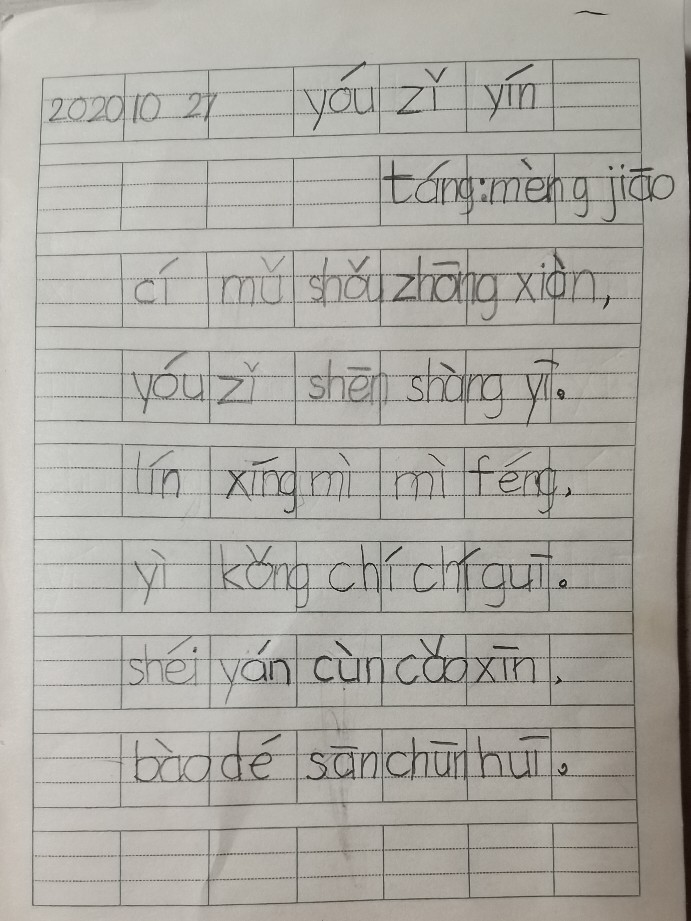 2020 10 27 yóu zǐ yín
táng:mèng jiāo
cí mǔ shǒu zhōng xiàn,
yóu zǐ shēn shàng yī。
lín xīng mì mì féng,
yì kǒng chí chí guī。
shéi yán cùn cǎo xīn,
bào dé sān chūn huī。